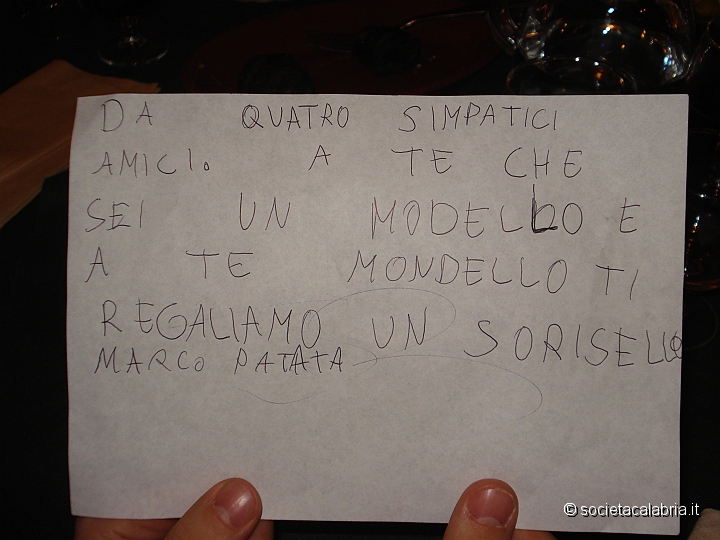 DA QUATRO SIMPATICI
AMICI. A TE CHE
SEI UN MODELLO E
A TE MONDELLO TI
REGALIAMO UN SORISELLO
MARCO PATATA
© societacalabria.it